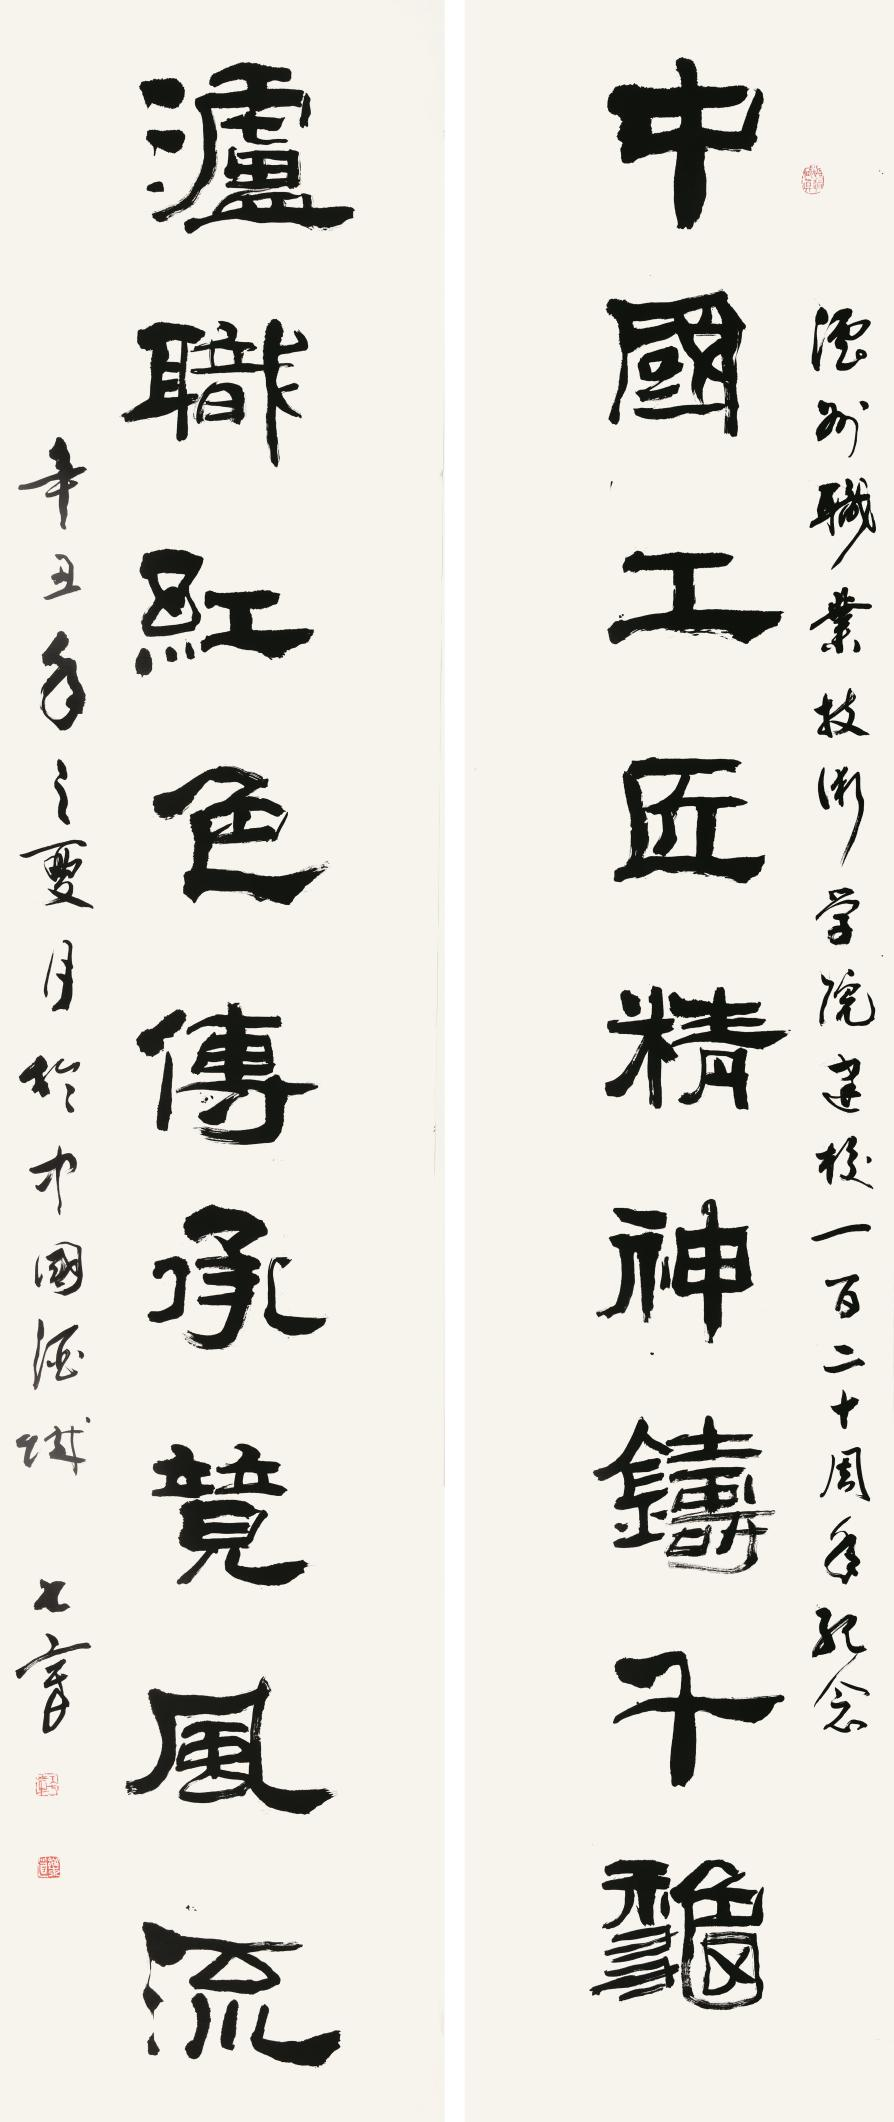 瀘州職業技術学院建校一百二十周年紀念
中國工匠精神鑄千龝
瀘職紅色傳承競風流
辛丑年之夏月於中國酒城